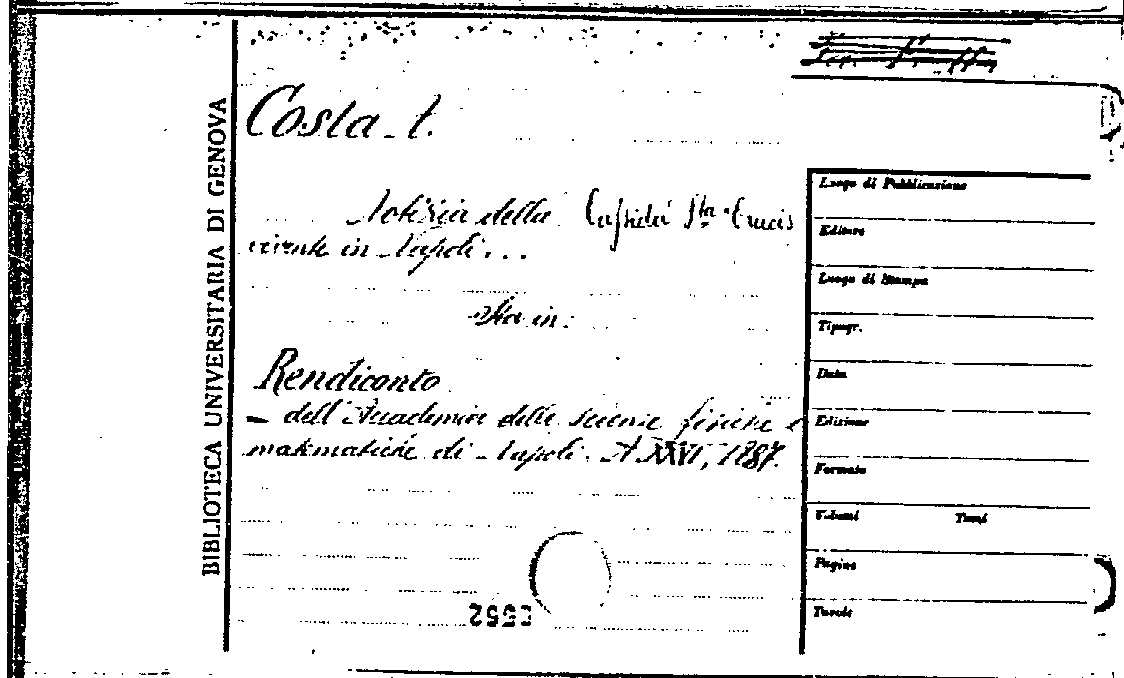 BIBLIOTECA UNIVERSITARIA DI GENOVA
Costa
Notizia della Cassida Sta Crucis
vivente in Napoli...
Sta in:
Rendiconto
- dell'Accademia delle scienze fisiche e
matematiche di Napoli. A XXVI, 1887.
Luogo di Pubblicazione
Editore
Luogo di Stampa
Tipogr.
Data
Edizione
Formato
Volumi Tomi
Pagine
Tavole